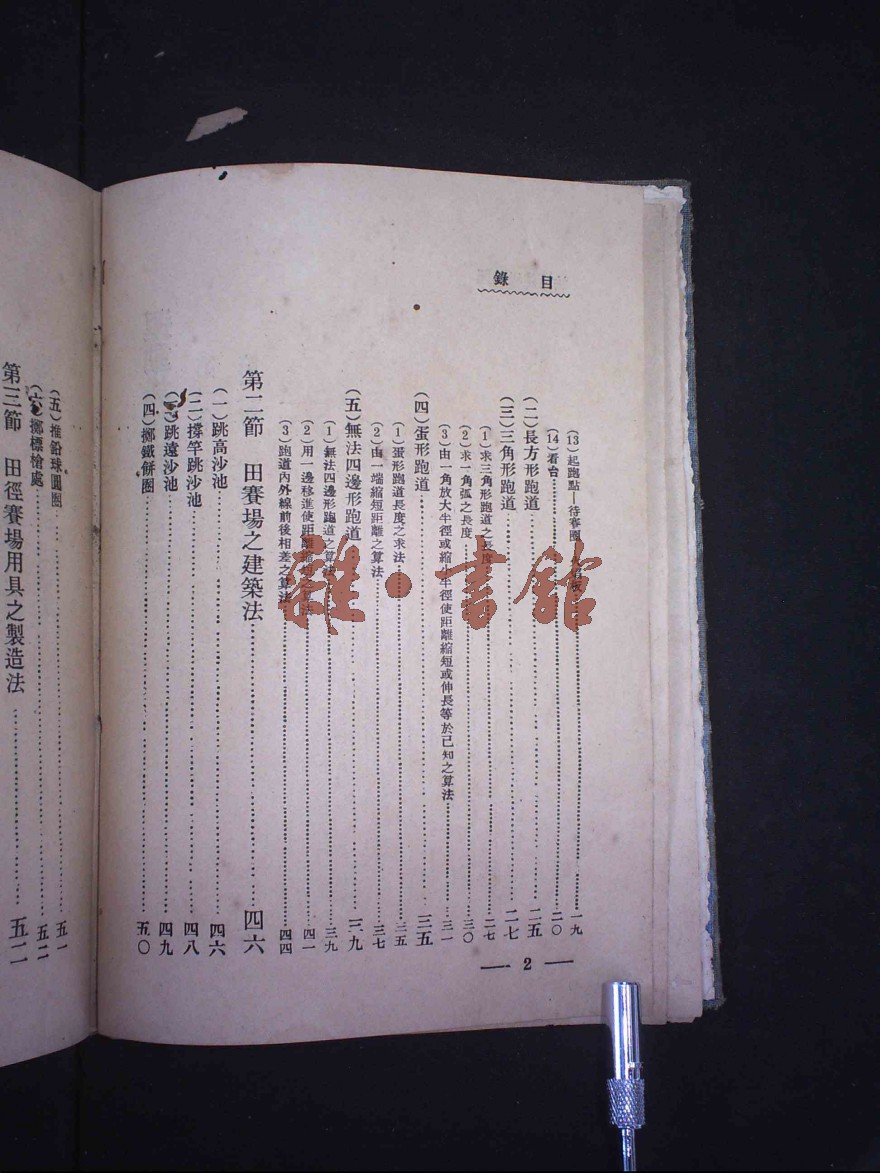 目錄
(13)起跑點—待賽圈……一九
(14)看台……二〇
(二)長方形跑道……二五
(三)三角形跑道……二七
(1)求三角形跑道之長度……二七
(2)求一角弧之長度……三〇
(3)由一角放大半徑或縮小半徑使距離縮短或伸長等於已知之算法……三一
(四)蛋形跑道……三五
(1)蛋形跑道長度之求法……三五
(2)由一端縮短距離之算法……三七
(五)無法四邊形跑道……三九
(1)無法四邊形跑道之算法……三九
(2)用一邊移進使距離縮……四一
(3)跑道內外線前後相差之算法……四四
第二節 田賽場之建築法……四六
(一)跳高沙池……四六
(二)撐竿跳沙池……四八
(三)跳遠沙池……四九
(四)擲鐵餅圈……五〇
(五)推鉛球圓圈……五一
(六)擲標槍處……五二
第三節 田徑賽場用具之製造法……五二
— 2 —
雜·書館